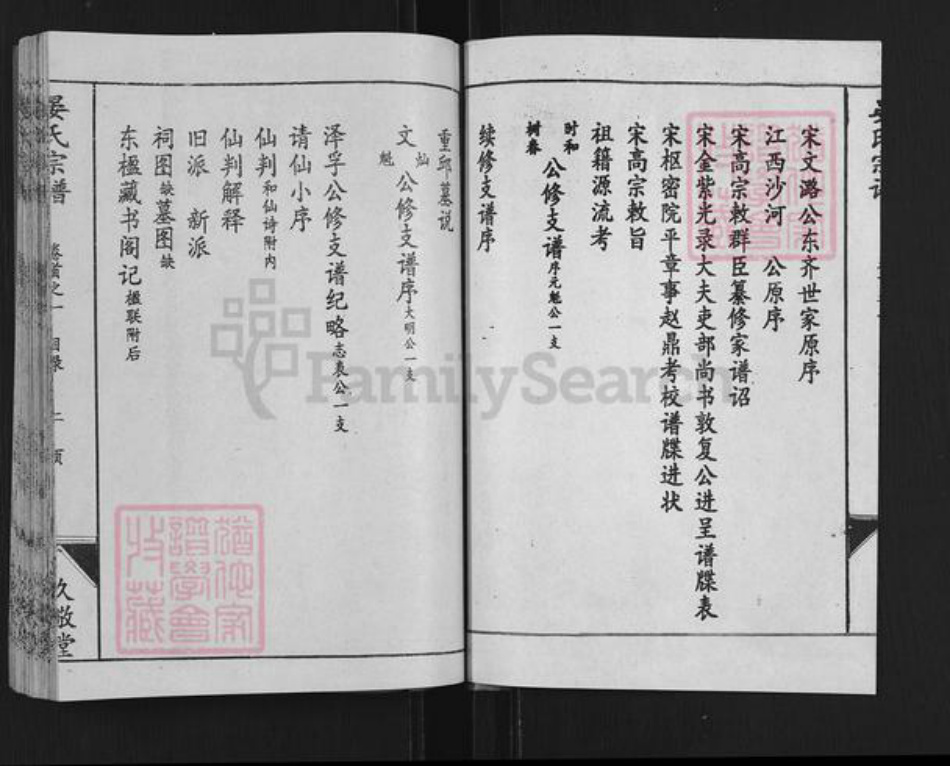 晏氏宗谱
宋文潞公东齐世家原序
江西沙河 公原序
宋高宗敕群臣纂修家谱诏
宋金紫光录大夫吏部尚书敦复公进呈谱牒表
宋枢密院平章事赵鼎考校谱牒进状
宋高宗敕旨
祖籍源流考
时和树春公修支谱序元魁公一支
续修支谱序
重邱墓说
文灿魁公修支谱序大明公一支
泽孚公修支谱纪略志表公一支
请仙小序
仙判和仙诗附内
仙判解释
旧派 新派
祠图缺墓图缺
东楹藏书阁记楹联附后
晏氏宗谱 卷首之一 目录 久敬堂
谱学会
收藏
FamilySearch